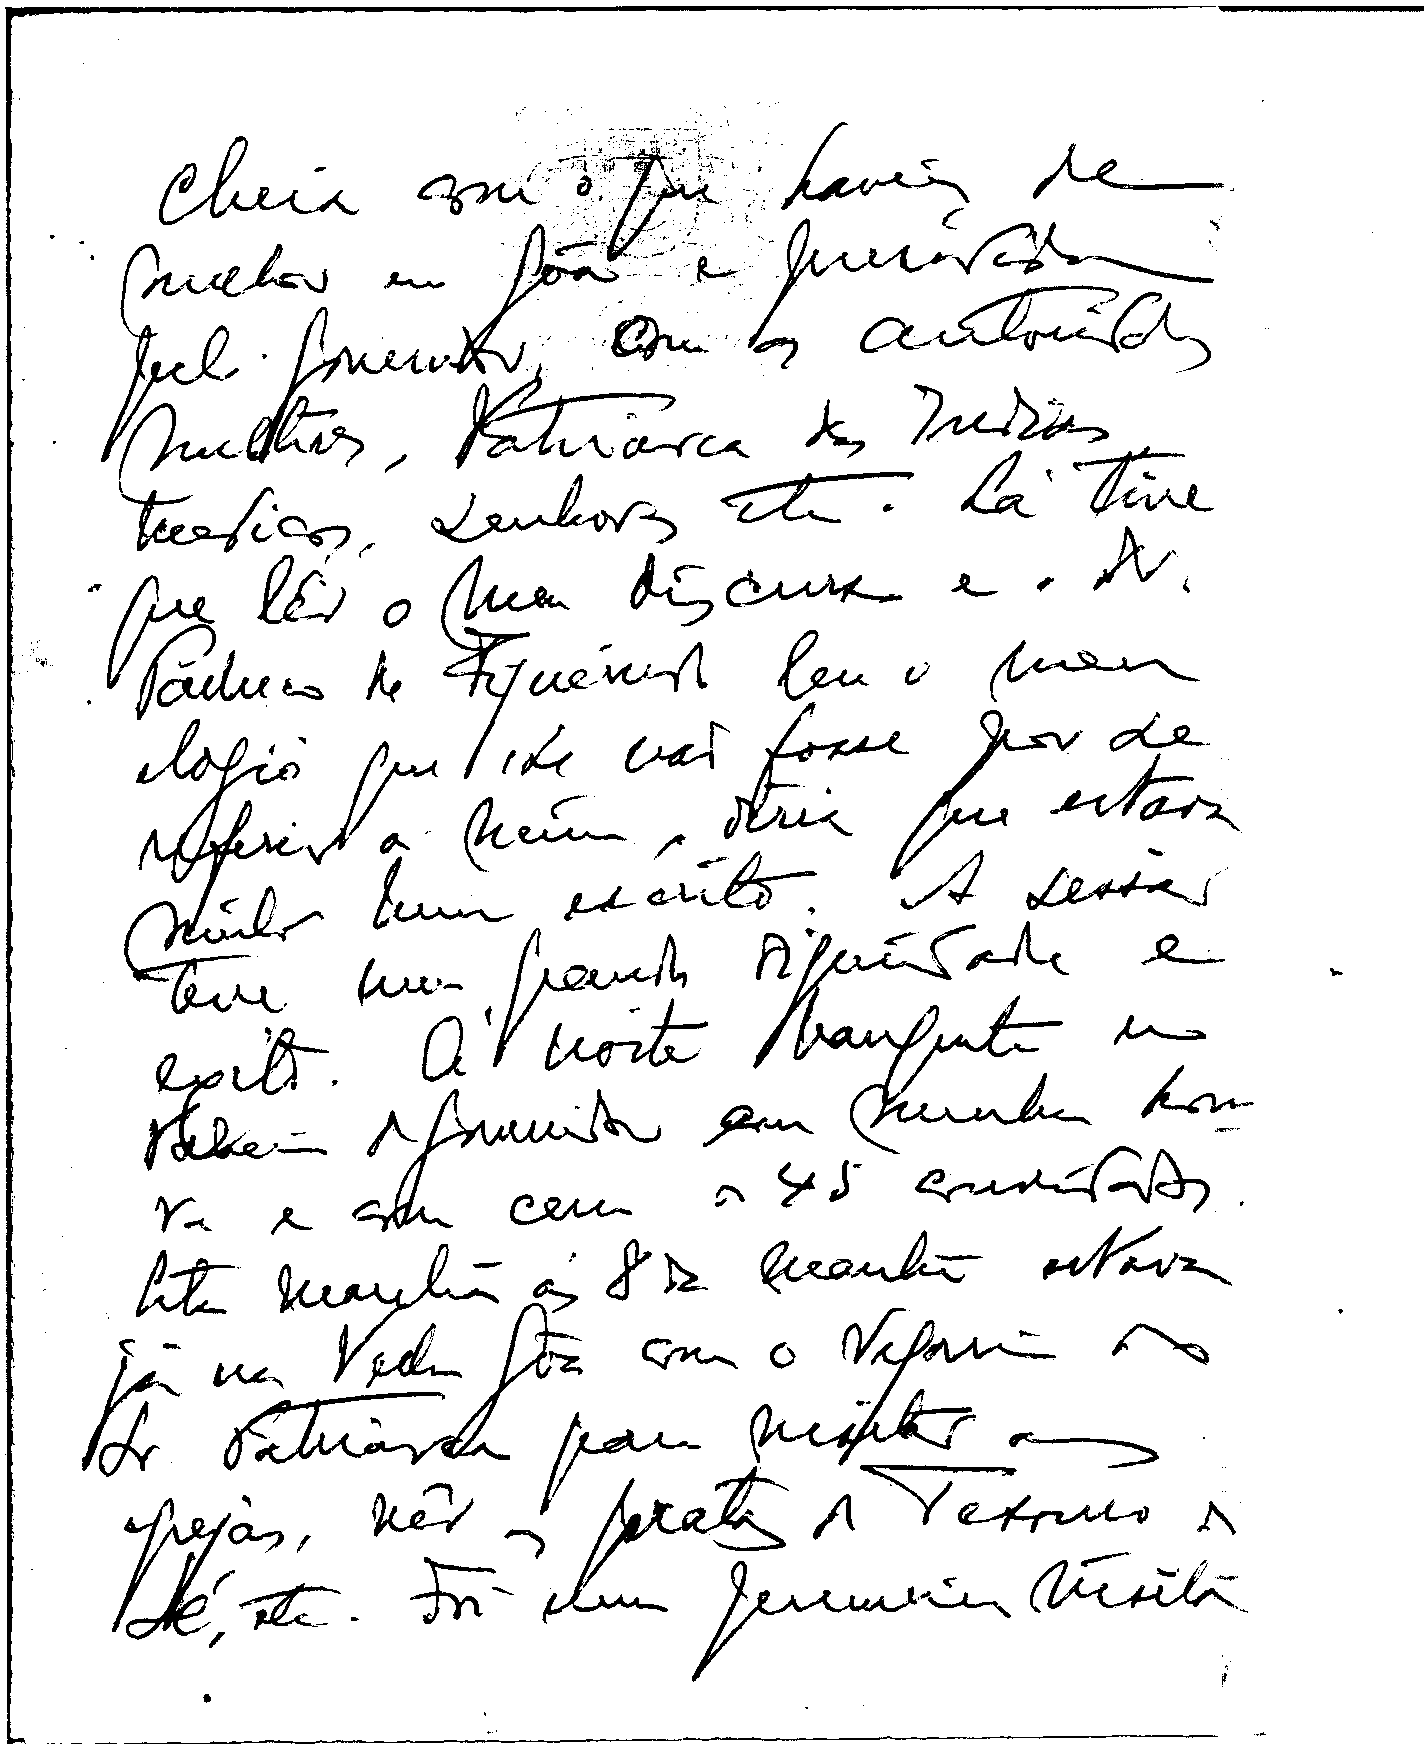 cheia com o que havia de
melhor em Gôa e presidida
pelo Governador, com as autoridades
militares, Patriarca das Indias
medicos, senhoras etc. Lá tive
que lêr o meu discurso e o Dr.
Pacheco de Figueiredo leu o meu
elogio que se não fosse por se
referir a mim, diria que estava
muito bem escrito. A sessão
teve uma grande dignidade e
exito. Á noite banquete no
Palacio do Governador em minha hon-
ra e com cerca de 45 convidados.
Esta manhã ás 8 da manhã estava
já na Velha Gôa com o Vigario do
Sr Patriarca para visitar as
igrejas, vêr as pratas do Tesouro da
Sé, etc. Foi uma primeira visita